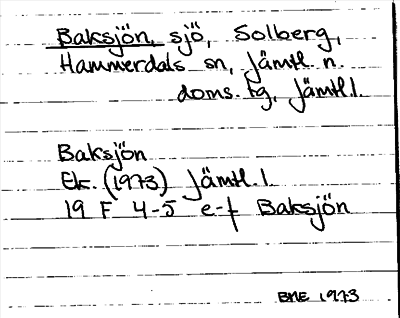 Baksjön, sjö, Solberg,
Hammerdals sn, Jämtl. n.
doms. tg, Jämtl. l.
Baksjön
Ek. (1973) Jämtl. l.
19 F 4-5 e-f Baksjön
BME 1973